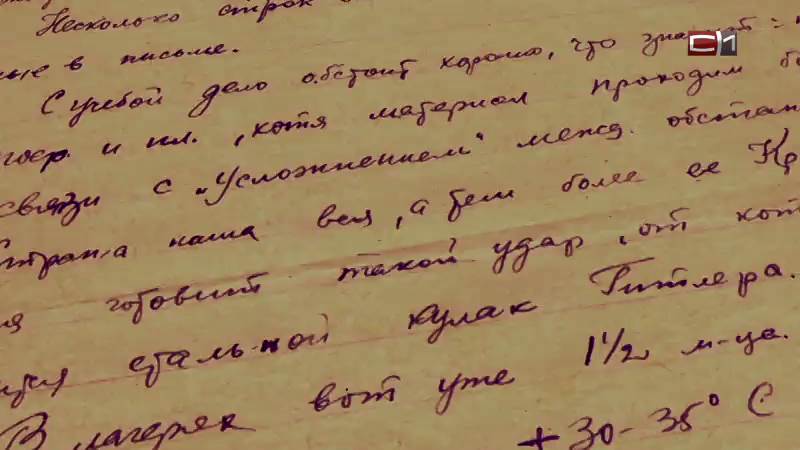 Несколько строк
ные в письме.
С учебой дело обстоит хорошо, что
и пл., хотя материал проходим
связи с „Усложнением" межд. обстан
Страна наша вся, а тем более ее
готовит такой удар, от кот
стальной кулак Гитлера.
В лагерях вот уже 1 1/2 м-ца.
+30-35° С
СТ1